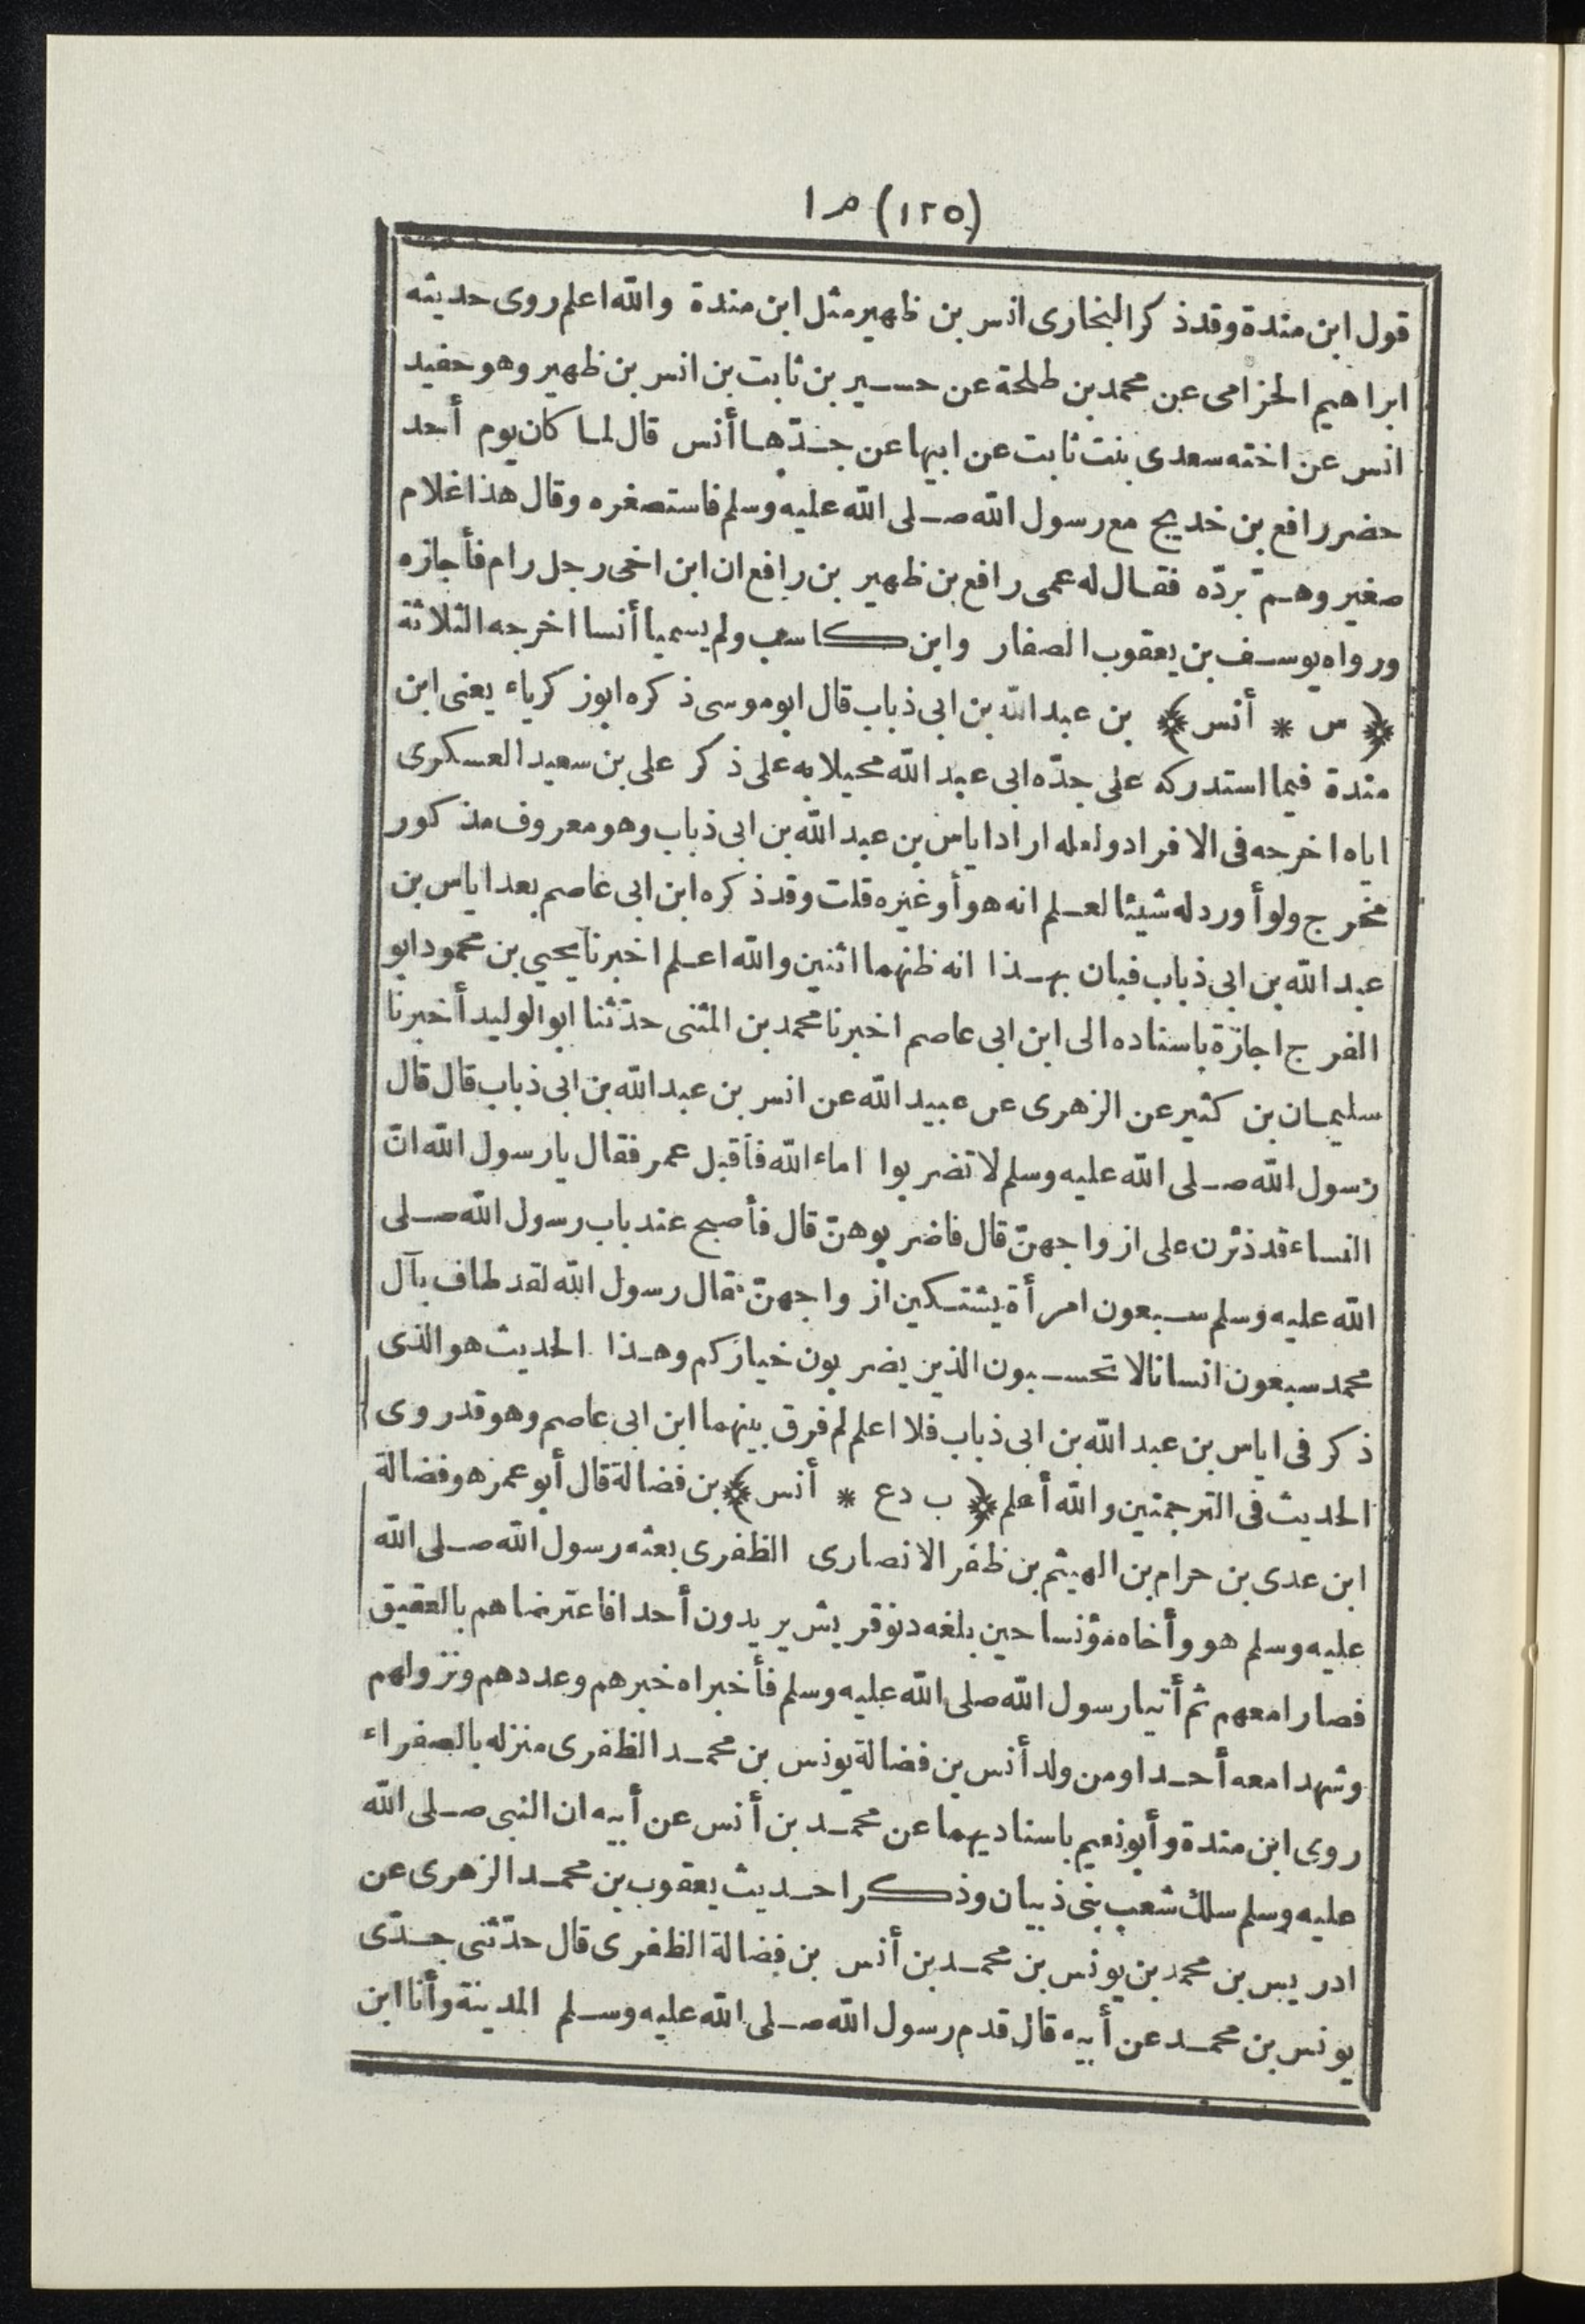 (١٢٥) م ١
قول ابن مندة وقد ذكر البخارى انس بن ظهير مثل ابن مندة والله اعلم روى حديثه
ابراهيم الحزامى عن محمد بن طلحة عن حسير بن ثابت بن انس بن ظهير وهو حفيد
انس عن اخته سعدى بنت ثابت عن ابيها عن جدّها أنس قال لما كان يوم أحد
حضر رافع بن خديج مع رسول الله صلى الله عليه وسلم فاستصغره وقال هذا غلام
صغير وهمّ بردّه فقال له عمى رافع بن ظهير بن رافع ان ابن اخى رجل رام فأجازه
ورواه يوسف بن يعقوب الصفار وابن كاسب ولم يسميا أنسا اخرجه الثلاثة
﴿ س * أنس ﴾ بن عبد الله بن ابى ذباب قال ابو موسى ذكره ابوزكرياء يعنى ابن
مندة فيما استدركه على جدّه ابى عبد الله محيلا به على ذكر على بن سعيد العسكرى
اياه اخرجه فى الافراد ولعله اراد اياس بن عبد الله بن ابى ذباب وهو معروف مذكور
مخرج ولو أورد له شيئا لعلم انه هو أو غيره قلت وقد ذكره ابن ابى عاصم بعد اياس بن
عبد الله بن ابى ذباب فبان بهذا انه ظنهما اثنين والله اعلم اخبرنا يحيى بن محمود ابو
الفرج اجازة باسناده الى ابن ابى عاصم اخبرنا محمد بن المثنى حدّثنا ابو الوليد أخبرنا
سليمان بن كثير عن الزهرى عن عبيد الله عن انس بن عبد الله بن ابى ذباب قال قال
رسول الله صلى الله عليه وسلم لا تضربوا اماء الله فأقبل عمر فقال يا رسول الله انّ
النساء قد ذئرن على ازواجهنّ قال فاضربوهنّ قال فأصبح عند باب رسول الله صلى
الله عليه وسلم سبعون امرأة يشتكين ازواجهنّ فقال رسول الله لقد طاف بآل
محمد سبعون انسانا لا تحسبون الذين يضربون خياركم وهذا الحديث هو الذى
ذكر فى اياس بن عبد الله بن ابى ذباب فلا اعلم لم فرق بينهما ابن ابى عاصم وهو قد روى
الحديث فى الترجمتين والله أعلم ﴿ ب د ع * أنس ﴾ بن فضالة قال أبو عمر هو فضالة
ابن عدى بن حرام بن الهيثم بن ظفر الانصارى الظفرى بعثه رسول الله صلى الله
عليه وسلم هو وأخاه مؤنسا حين بلغه دنو قريش يريدون أحدا فاعترضاهم بالعقيق
فصارا معهم ثم أتيا رسول الله صلى الله عليه وسلم فأخبراه خبرهم وعددهم ونزولهم
وشهدا معه أحدا ومن ولد أنس بن فضالة يونس بن محمد الظفرى منزله بالصفراء
روى ابن مندة وأبو نعيم باسناديهما عن محمد بن أنس عن أبيه ان النبى صلى الله
عليه وسلم سلك شعب بنى ذبيان وذكرا حديث يعقوب بن محمد الزهرى عن
ادريس بن محمد بن يونس بن محمد بن أنس بن فضالة الظفرى قال حدّثنى جدّى
يونس بن محمد عن أبيه قال قدم رسول الله صلى الله عليه وسلم المدينة وأنا ابن